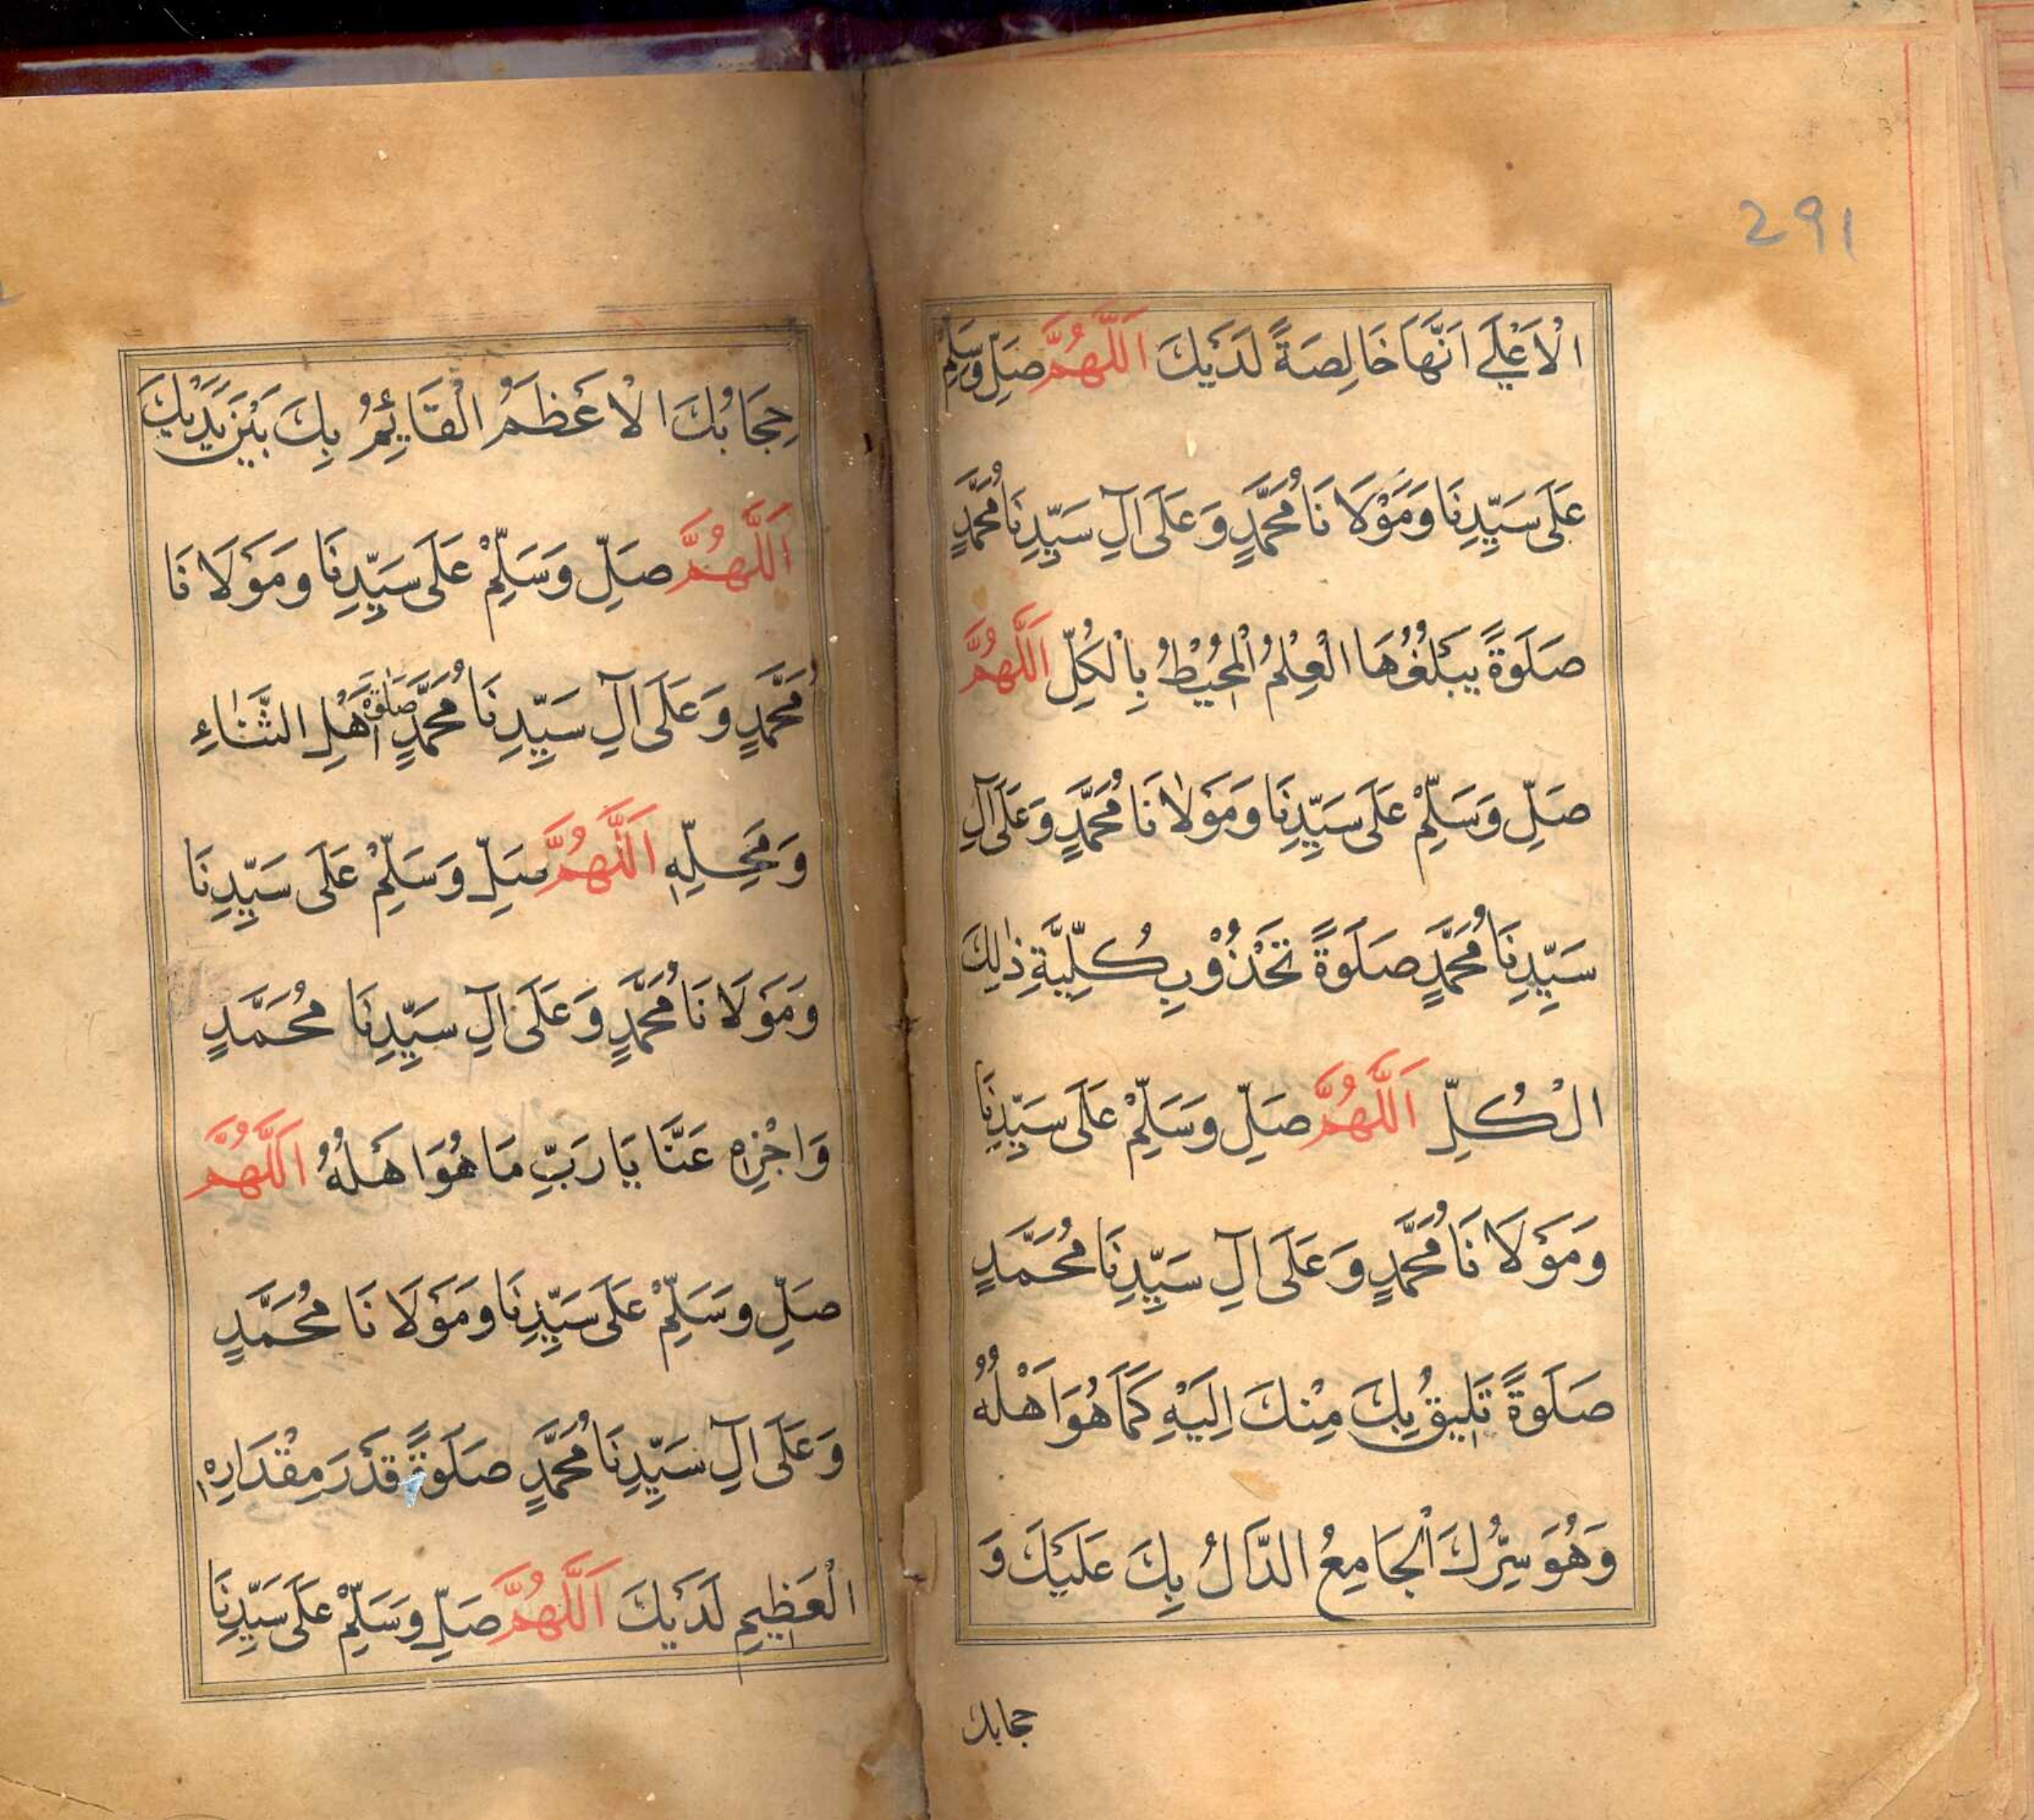 291
الْاَعْلٰے اَنَّهَا خَالِصَةً لَدَيْكَ اَللّٰهُمَّ صَلِّ وَسَلِّمْ
عَلَى سَيِّدِنَا وَمَوْلَانَا مُحَمَّدٍ وَعَلَى اٰلِ سَيِّدِنَا مُحَمَّدٍ
صَلَوةً يَبْلُغُهَا الْعِلْمُ الْمُحِيْطُ بِالْكُلِّ اَللّٰهُمَّ
صَلِّ وَسَلِّمْ عَلَى سَيِّدِنَا وَمَوْلَانَا مُحَمَّدٍ وَعَلَى اٰلِ
سَيِّدِنَا مُحَمَّدٍ صَلَوةً كُلِّيَّةِ ذٰلِكَ
الْكُلِّ اَللّٰهُمَّ صَلِّ وَسَلِّمْ عَلَى سَيِّدِنَا
وَمَوْلَانَا مُحَمَّدٍ وَعَلَى اٰلِ سَيِّدِنَا مُحَمَّدٍ
صَلَوةً تَلِيقُ بِكَ مِنْكَ اِلَيْهِ كَمَا هُوَ اَهْلُهُ
وَهُوَ سِرُّكَ الْجَامِعُ الدَّالُ بِكَ عَلَيْكَ وَ
حجابك
حِجَابُكَ الْاَعْظَمُ الْقَائِمُ بِكَ بَيْنَ يَدَيْكَ
اَللّٰهُمَّ صَلِّ وَسَلِّمْ عَلَى سَيِّدِنَا وَمَوْلَانَا
مُحَمَّدٍ وَعَلَى اٰلِ سَيِّدِنَا مُحَمَّدٍ صَلٰوةَ اَهْلِ الثَّنَاءِ
وَمَحِلِّهِ اَللّٰهُمَّ صَلِّ وَسَلِّمْ عَلَى سَيِّدِنَا
وَمَوْلَانَا مُحَمَّدٍ وَعَلَى اٰلِ سَيِّدِنَا مُحَمَّدٍ
وَاجْزِهِ عَنَّا يَا رَبِّ مَا هُوَ اَهْلُهُ اَللّٰهُمَّ
صَلِّ وَسَلِّمْ عَلَى سَيِّدِنَا وَمَوْلَانَا مُحَمَّدٍ
وَعَلَى اٰلِ سَيِّدِنَا مُحَمَّدٍ صَلَوةً قَدْرَ مِقْدَارِهِ
الْعَظِيمِ لَدَيْكَ اَللّٰهُمَّ صَلِّ وَسَلِّمْ عَلَى سَيِّدِنَا